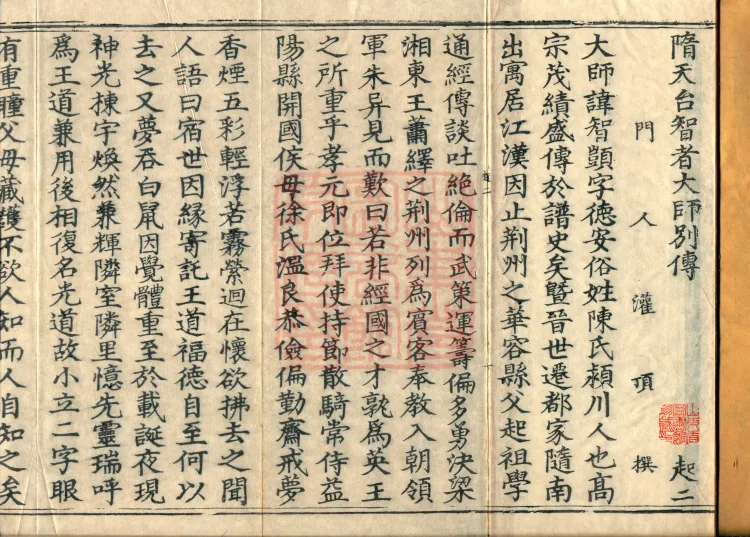 隋天台智者大師別傳 起二
門人灌頂撰
大師諱智顗字德安俗姓陳氏潁川人也高
宗茂績盛傳於譜史矣暨晉世遷都家隨南
出寓居江漢因止荊州之華容縣父起祖學
通經傳談吐絕倫而武策運籌偏多勇決梁
湘東王蕭繹之荊州列爲賓客奉教入朝領
軍朱异見而歎曰若非經國之才孰爲英王
之所重乎孝元即位拜使持節散騎常侍益
陽縣開國侯母徐氏溫良恭儉偏勤齋戒夢
香煙五彩輕浮若霧縈迴在懷欲拂去之聞
人語曰宿世因緣寄託王道福德自至何以
去之又夢吞白鼠因覺體重至於載誕夜現
神光棟宇煥然兼輝隣室隣里憶先靈瑞呼
爲王道兼用後相復名光道故小立二字眼
有重瞳父母藏護不欲人知而人自知之矣